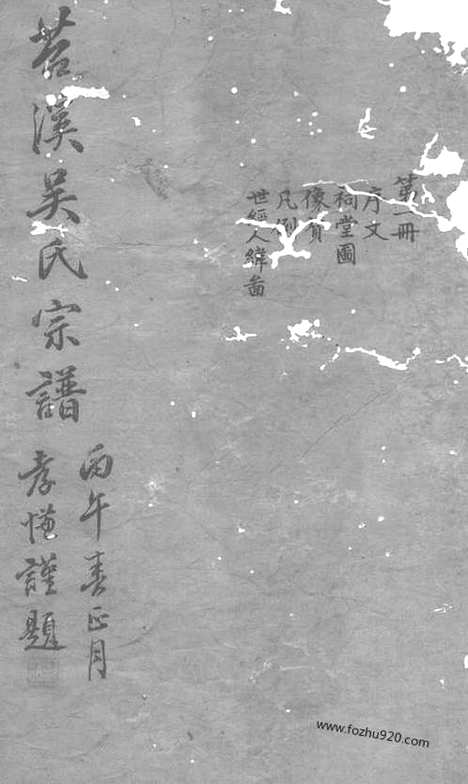 第一冊
序文
祠堂圖
像贊
凡例
世經人緯啚
苕溪吳氏宗譜
丙午春正月
孝
謹題
www.fozhu920.com